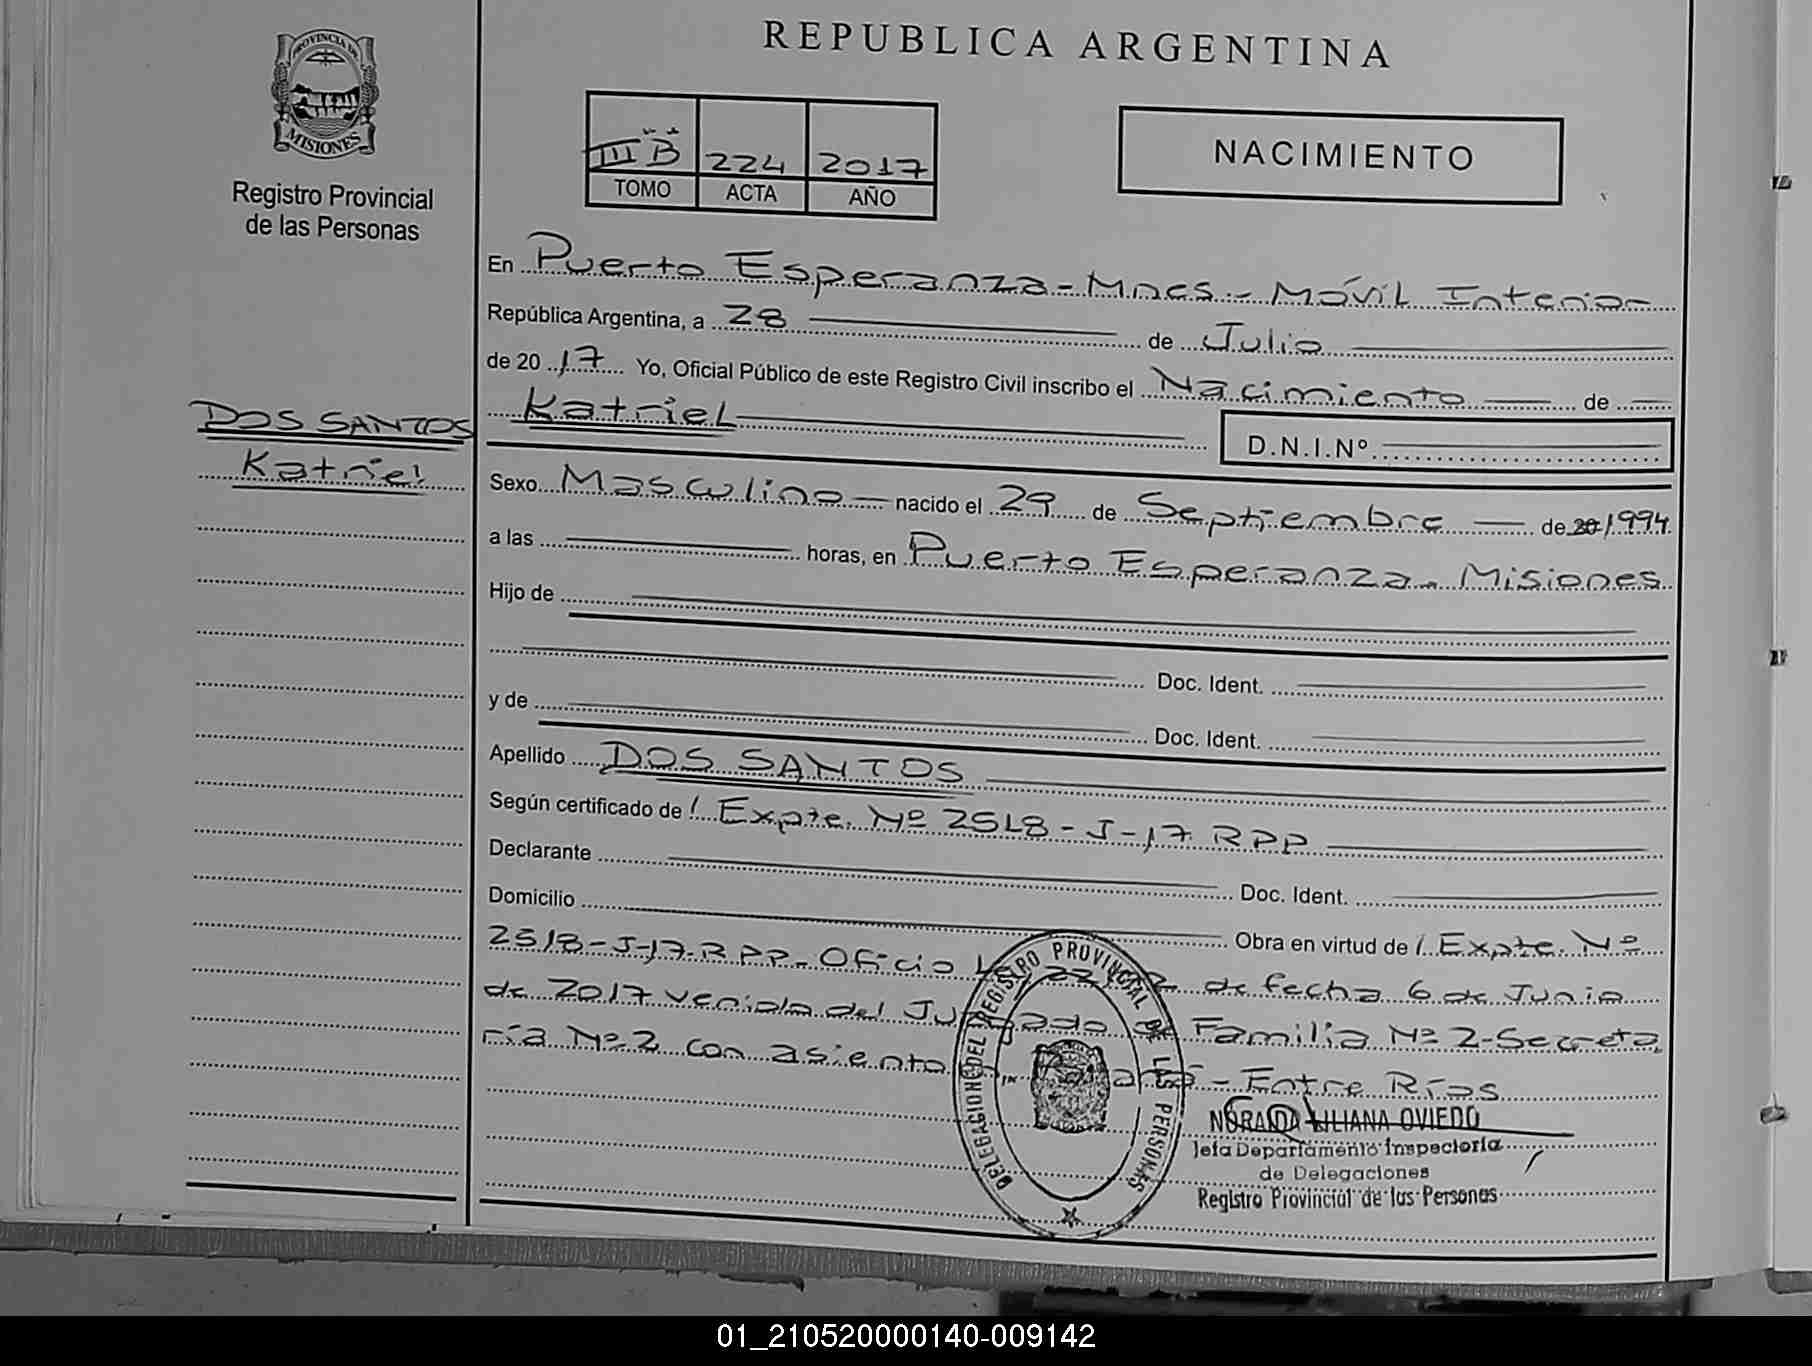 REPUBLICA ARGENTINA
PROVINCIA DE
MISIONES
Registro Provincial
de las Personas
III "B" 224 2017
TOMO ACTA AÑO
NACIMIENTO
En Puerto Esperanza - Mnes - Móvil Interior
República Argentina, a 28 de Julio
de 2017 Yo, Oficial Público de este Registro Civil inscribo el Nacimiento de
Katriel
D.N.I.Nº
DOS SANTOS
Katriel
Sexo Masculino nacido el 29 de Septiembre de 20 1994
a las horas, en Puerto Esperanza - Misiones
Hijo de
Doc. Ident.
y de
Doc. Ident.
Apellido DOS SANTOS
Según certificado de / Expte. Nº 2518-J-17 RPP
Declarante Doc. Ident.
Domicilio Obra en virtud de / Expte. Nº
2518-J-17-RPP- Oficio de fecha 6 de Junio
de 2017 venida del Juzgado de Familia Nº 2-Secreta
ría Nº 2 con asiento en - Entre Ríos
DELEGACION DEL REGISTRO PROVINCIAL DE LAS PERSONAS
NORMA LILIANA OVIEDO
Jefa Departamento Inspectoría
de Delegaciones
Registro Provincial de las Personas
01_210520000140-009142